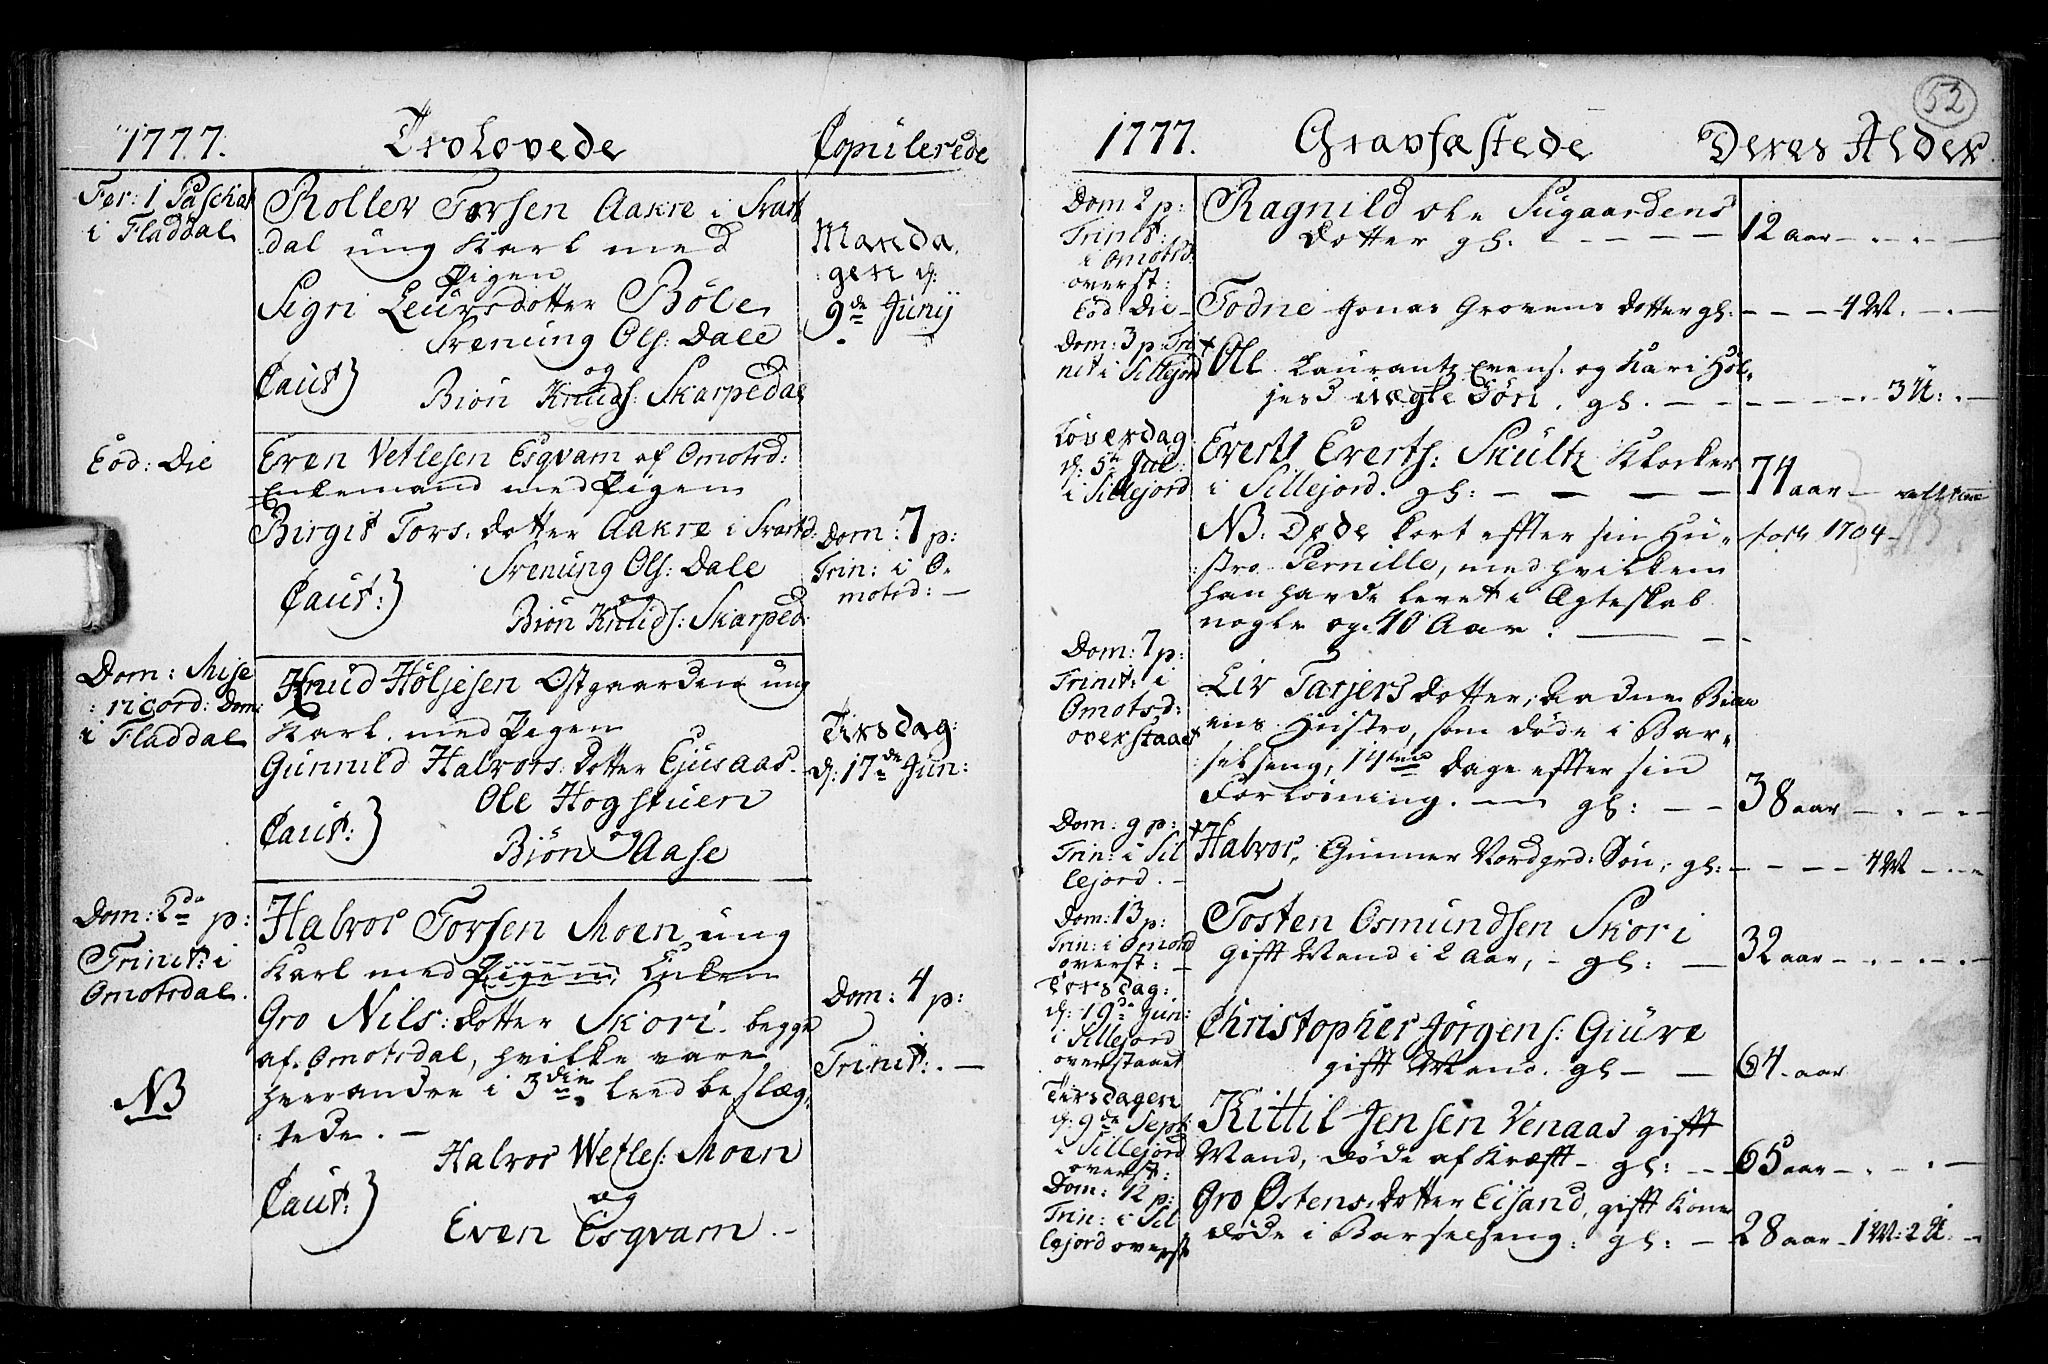 1777.
Trolovede
Copulerede
Fer: 1 Paschat
i Fladdal
Rollev Torsen Aakre i Svart
dal ung Karl med
Pigen
Sigri Leursdotter Böle
Manda,
:gen d:
9de Junij
Svenung Ols: Dale
Caut}
og
Biön Knuds: Skarpedal
Eod: Die
Even Vetlesen Esqvam af Omotsd:
Enkemand med Pigen
Birgit Tors. dotter Aakre i Svartd:
Svenung Ols: Dale
Caut:}
og
Biön Knuds: Skarped:
Dom: 7 p:
Trin: i O-
motsd: —
Dom: Mise
:ricord: Dom:
i Fladdal
Knud Höljesen Ostgaarden ung
Karl. med Pigen
Gunnild Halvors: Dotter Ejusaas.
Ole Hogstuen
Caut:}
og
Biön Aase
Tirsdag:
d: 17de Jun:
Dom: 2da p:
Trinit: i
Omotsdal.
Halvor Torsen Moen ung
Karl med Pigen Enken
Gro Nils: dotter Skori. begge
af. Omotsdal, hvilke vare
hverandre i 3die leed beslæg,
:tede. —
NB
Halvor Wetles: Moen
Caut:}
og
Even Esqvam. —
Dom: 4 p:
Trinit:. —
52
1777.
Gravfæstede
Deres Alder.
Dom 2 p:
Trinit:
i Omotsd:
overst:
Ragnild Ole Sugaardens
Dotter gl: - - - - - 12 aar - . - . -
Eod Die -
Todne Jonas Grovens Dotter gl: - - - 4 W. - . -
Dom: 3 p: Tri
nit i Sillejord
Ol Laurantz Evens. og Kari Höl-
jes 3 uægte Sön. gl. - - - - - . 3 U: . -
Loverdag
d: 5te Jul:
i Sillejord
Evert Everts: Skultz Klocker
i Sillejord. gl: - - - - 74 aar -
NB. Døde kort effter sin Hu-
stro Pernille, med hvilken
han havde levet i Ægteskab
nogle og. 40 Aar. - -
1704 -
Dom: 7 p:
Trinit: i
Omotsd:
overstaaet
Liv Tarjers dotter, Aadne
ens Hustro, som døde i Bar-
:selseng, 14 dage effter sin
Forlösning. — gl: - - 38 aar - . - . -
Dom: 9 p:
Trin: i Sil
lejord. -
Halvor, Gunner Nordgrd: Sön, gl: - - - - 4 W - . -
Dom: 13 p:
Trin: i Omotsd
overst: -
Tosten Osmundsen Skori
gifft Mand i 2 Aar, - gl: - 32 aar - . - . -
Torsdag:
d: 19de Jun:
i Sillejord
overstaaet
Christopher Jörgens: Giure
gifft Mand. gl - - 64 - aar
Tirsdagen
d: 9de Sept:
i Sillejord
overst:
Kittil Jensen Venaas gifft
Mand, døde af Kræfft - gl: - - 65 aar - . - . -
Dom: 12 p:
Trin: i Sil
lejord overst
Gro Østens. Dotter Eisand, gifft Kone
døde i Barselseng: gl: - 28 aar - 1 W: 2 U. -